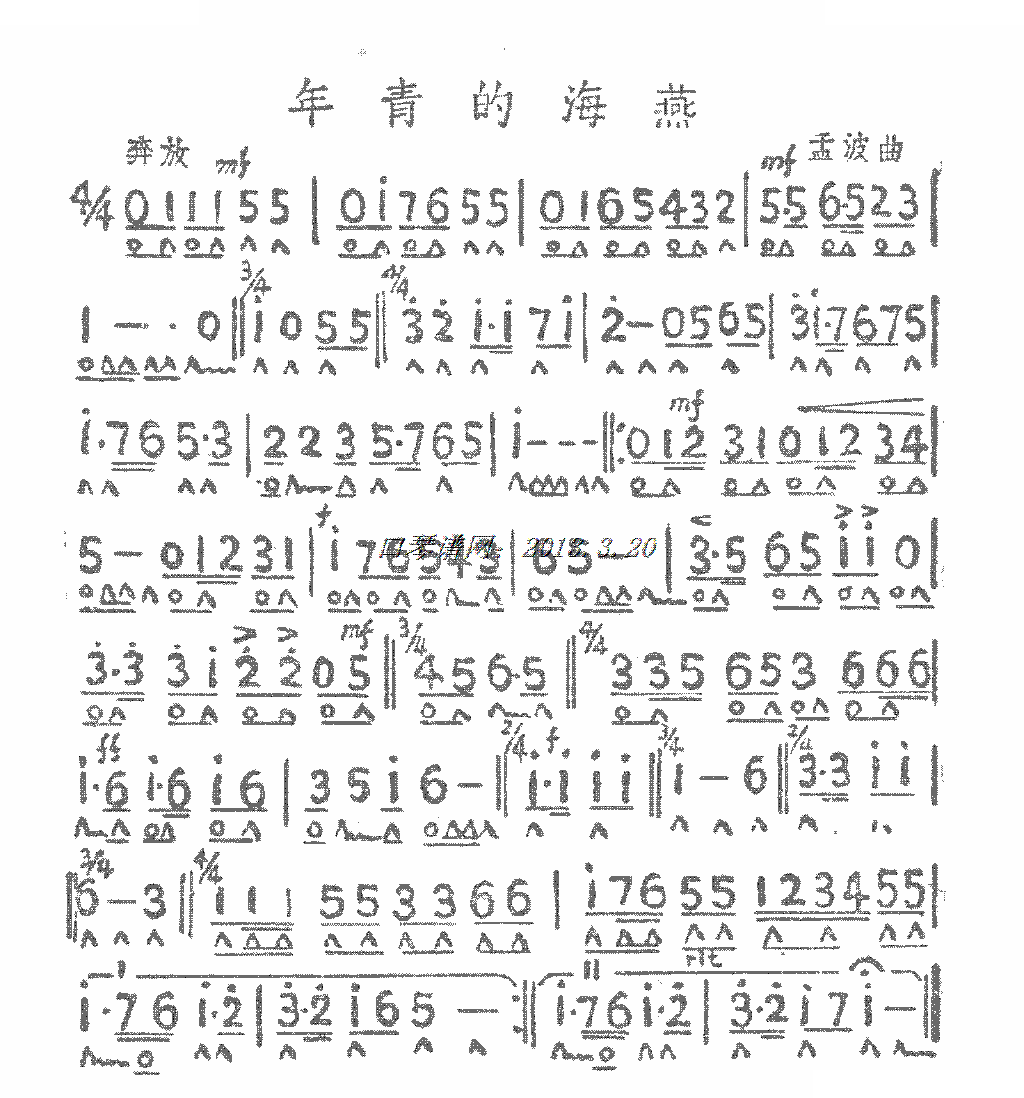 年青的海燕
奔放 mf mf 孟波曲
4/4 0 1 1 1 5 5 | 0 i 7 6 5 5 | 0 1 6 5 4 3 2 | 5·5 6·5 2 3 |
3/4 4/4
1 — · 0 || i 0 5 5 || 3 2 i·i 7 i | 2 — 0 5 6 5 | 3 i·7 6 7 5 |
mf
i·7 6 5·3 | 2 2 3 5·7 6 5 | i - - - ||: 0 1 2 3 1 0 1 2 3 4 |
f
5 — 0 1 2 3 1 | i 7 6 5 4 3 | 6 5 — | 3·5 6 5 i i 0
口琴谱网 2018.3.20
> > mf 3/4 4/4
3·3 3 i 2 2 0 5 || 4 5 6·5 || 3 3 5 6 5 3 6 6 6 |
ff 2/4 f 3/4 2/4
i·6 i·6 i 6 | 3 5 i 6 — || i·i i i || i — 6 || 3·3 i i |
3/4 4/4
6 — 3 || 1 1 1 5 5 3 3 6 6 | i 7 6 5 5 1 2 3 4 5 5 |
rit
i·7 6 i·2 | 3·2 i 6 5 — :|| i·7 6 i·2 | 3·2 i 7 i — ||